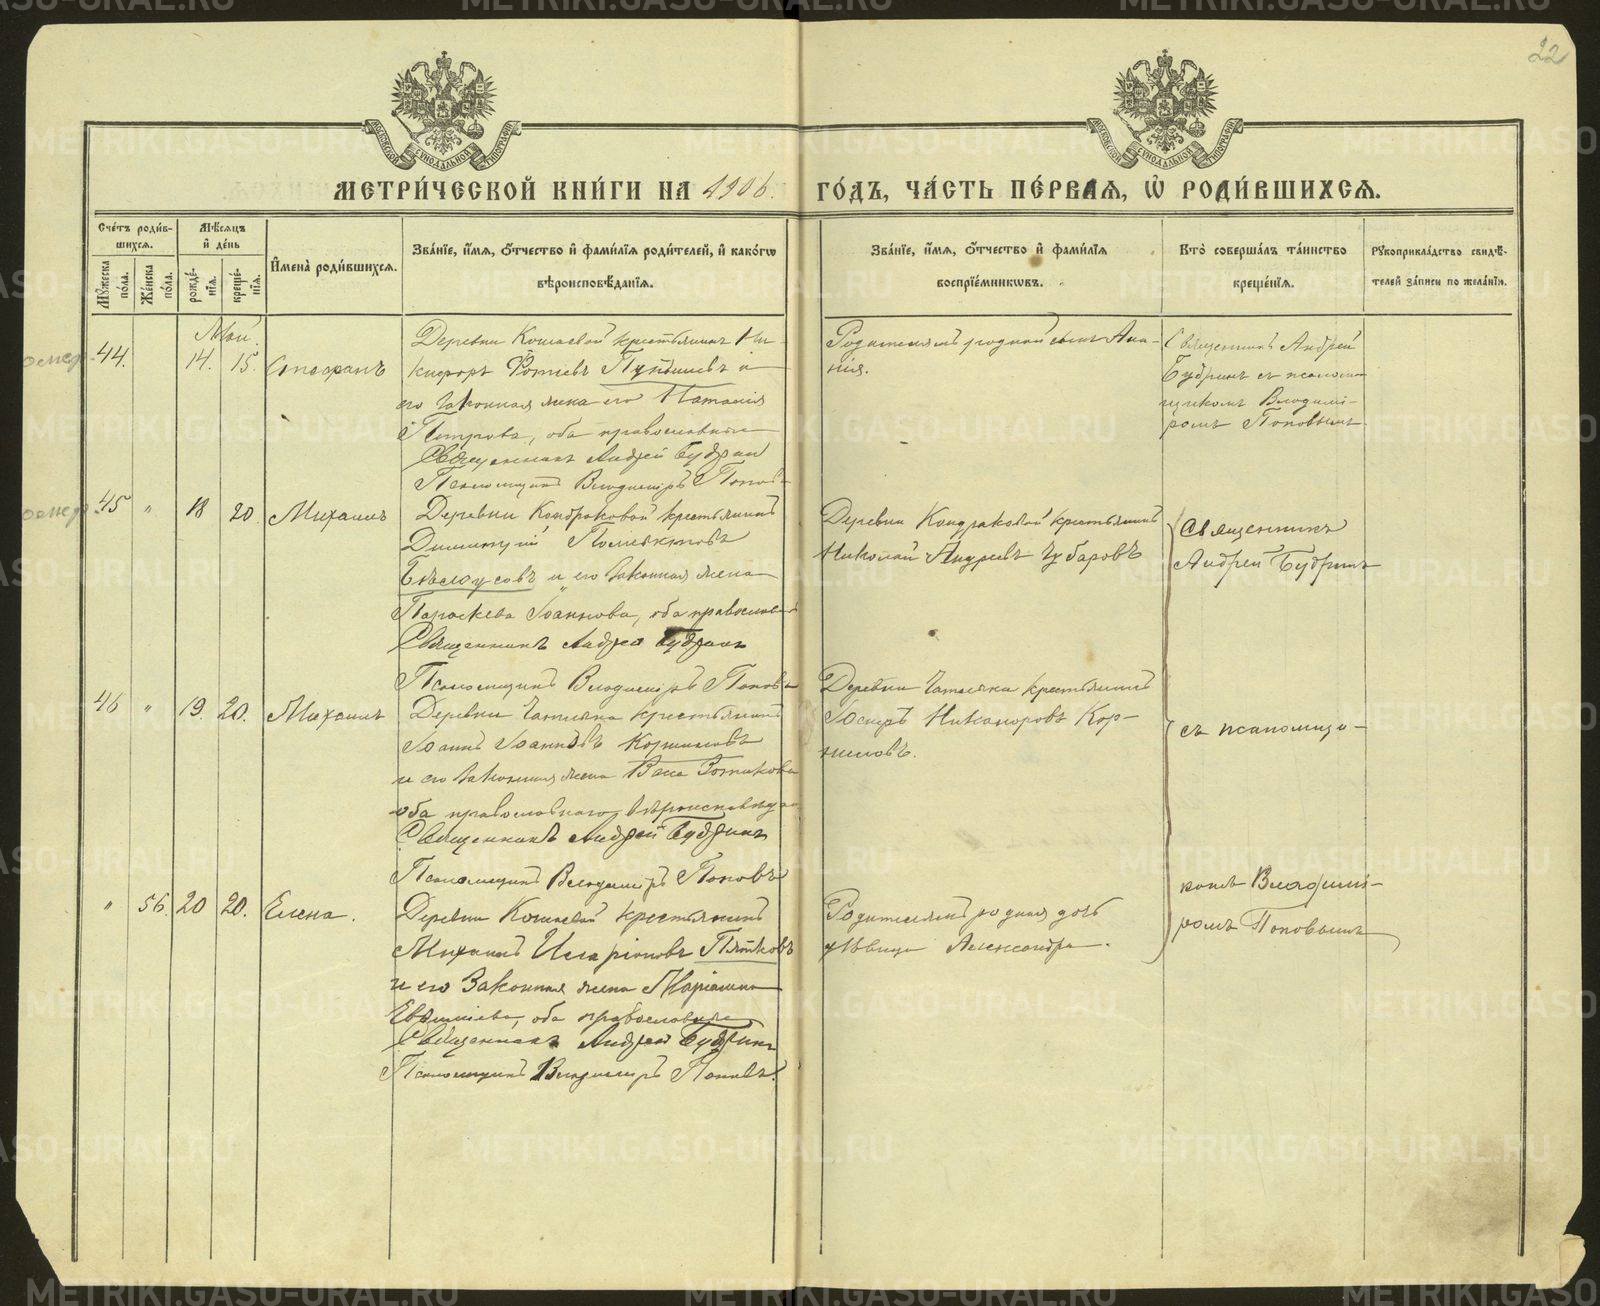 22
МОСКОВСКОЙ СѴНОДАЛЬНОЙ ТИПОГРАФІИ
МОСКОВСКОЙ СѴНОДАЛЬНОЙ ТИПОГРАФІИ
МЕТРИ́ЧЕСКОЙ КНИ́ГИ НА 1906. ГО́ДЪ, ЧА́СТЬ ПЕ́РВАЯ, Ѡ҆ РОДИ́ВШИХСЯ.
Сче́тъ роди́в-
шихся.
Мꙋ́жеска по́ла.
Же́нска по́ла.
Мѣ́сяцъ
и҆ де́нь
рожде́-
нїя.
креще́-
нїя.
И҆мена̀ роди́вшихся.
Зва́нїе, и҆́мя, ѻ҆́тчество и҆ фами́лїя роди́телей, и҆ како́гѡ
вѣроисповѣ́данїя.
Зва́нїе, и҆́мя, ѻ҆́тчество и҆ фами́лїя
воспрїе́мникѡвъ.
Кто̀ соверша́лъ та́инство
креще́нїя.
Рꙋкоприкла́дство свидѣ́-
телей за́писи по жела́нїю.
Май.
44. 14. 15. Стефанъ
Деревни Кошаевой крестьянинъ Ни-
кифоръ Фотіевъ и
его законная жена его Наталія
Петрова, оба православные
Священникъ Андрей Будрин
Псаломщикъ Владиміръ Попов
Родителямъ родной сынъ Ана-
нія.
Священникъ Андрей
Будринъ съ псалом
щикомъ Владимі-
ромъ Поповымъ
45 " 18 20. Михаилъ
Деревни Кондраковой крестьянинъ
Димитрій Полиевктовъ
Бѣлоусовъ и его законная жена
Параскева Іоаннова, оба православн
Священникъ Андрей Будринъ
Псаломщикъ Владиміръ Поповъ
Деревни Кондраковой крестьянинъ
Николай Андреевъ Губаровъ
Священникъ
Андрей Будринъ
46 " 19. 20. Михаилъ
Деревни крестьянинъ
Іоаннъ Іоанновъ Корниловъ
и его законная жена Васса Зотикова
оба православнаго вѣроисповѣдан
Священникъ Андрей Будринъ
Псаломщикъ Владиміръ Поповъ
Деревни крестьянинъ
Іосифъ Никаноровъ Кор-
ниловъ.
съ псаломщи-
" 56. 20 20. Елена.
Деревни Кошаевой крестьянинъ
Михаилъ Иларіоновъ Пятковъ
и его законная жена Маріанна
Евфиміева, оба православные
Священникъ Андрей Будринъ
Псаломщикъ Владиміръ Поповъ.
Родителямъ родная дочь
дѣвица Александра.
комъ Владимі-
ромъ Поповымъ
METRIKI.GASO-URAL.RU